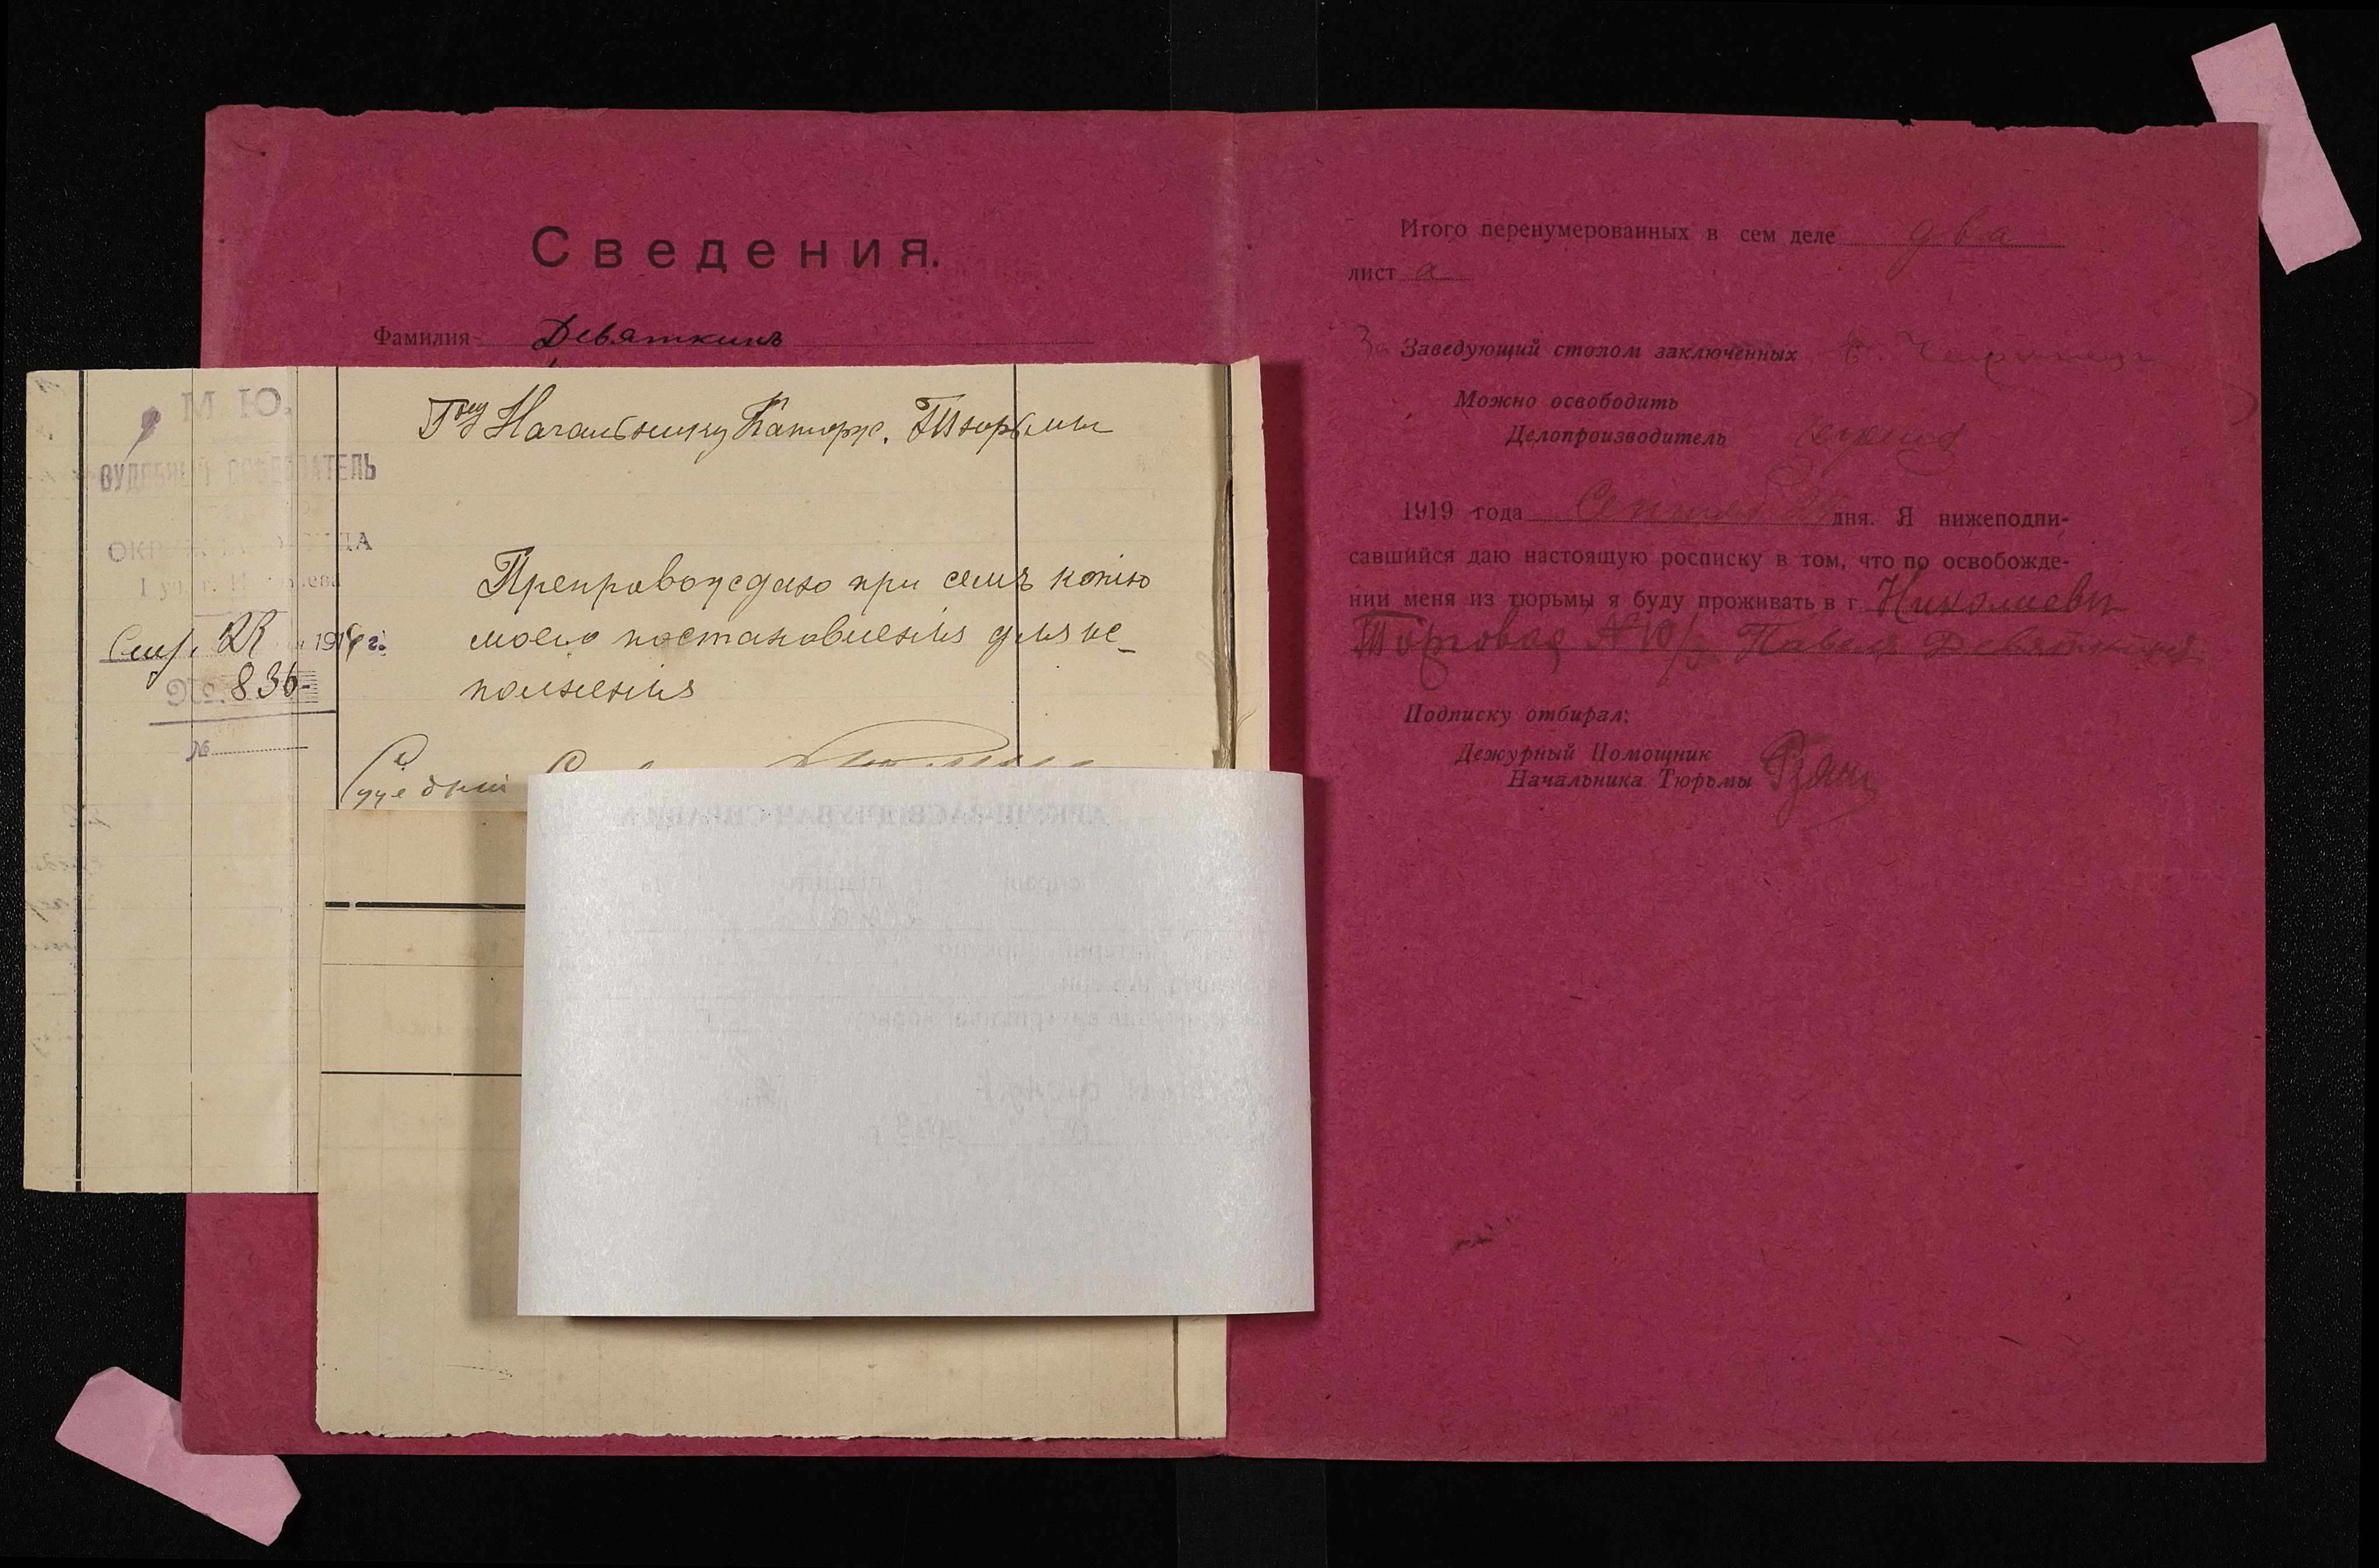 Сведения.
Фамилия Девяткинъ
М. Ю.
СУДЕБНЫЙ СЛЕДОВАТЕЛЬ
ОКРУЖНОГО СУДА
1 уч. г. Николаева
1919 г.
№ 836
№
Гну Начальнику Каторж. Тюрьмы
Препровождаю при семъ копію
моего постановленія для ис-
полненія
Судебный
Итого перенумерованных в сем деле два
лист а
За Заведующий столом заключенных
Можно освободить
Делопроизводитель
1919 года Сентяб. дня. Я нижеподпи-
савшийся даю настоящую росписку в том, что по освобожде-
нии меня из тюрьмы я буду проживать в г Николаеве
Торговая № 10/ Павелъ Девяткинъ
Подписку отбирал:
Дежурный Помощник
Начальника Тюрьмы